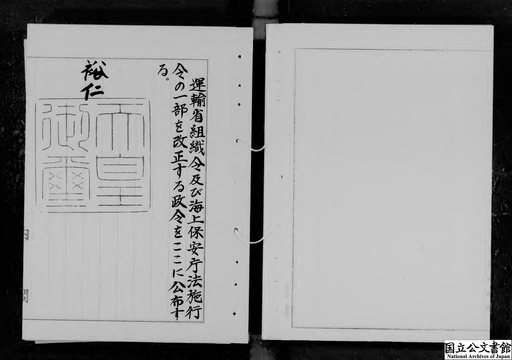 運輸省組織令及び海上保安庁法施行
令の一部を改正する政令をここに公布す
る。
裕仁
天皇
御璽
内
閣
国立公文書館
National Archives of Japan